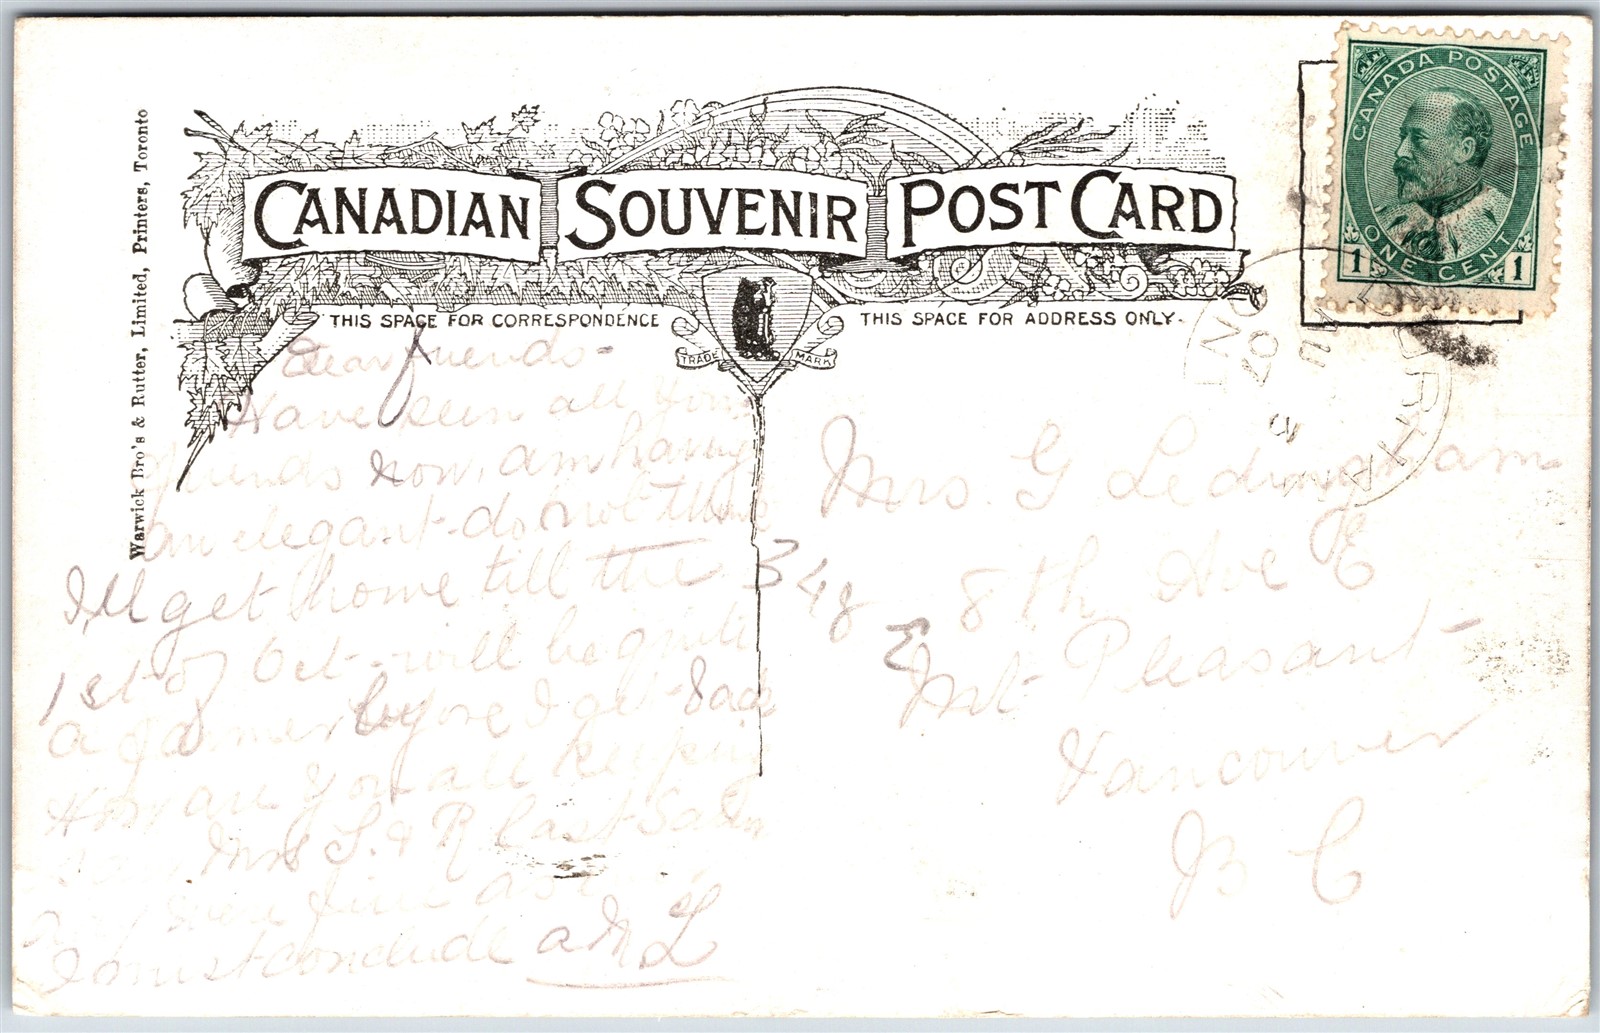 Warwick Bro's & Rutter, Limited, Printers, Toronto
CANADIAN SOUVENIR POST CARD
THIS SPACE FOR CORRESPONDENCE
THIS SPACE FOR ADDRESS ONLY
TRADE MARK
CANADA POSTAGE
ONE CENT
1 1
Dear friends-
Have seen all your
friends now, am having
an elegant- do not think
I'll get home till the
1st of Oct- will be quite
a farmer before I get back
How are you all keeping
Mrs S. & R last Satur
fine
I must conclude a M L
Mrs. G Ledingham
348 8th Ave E
Mt Pleasant
Vancouver
B C